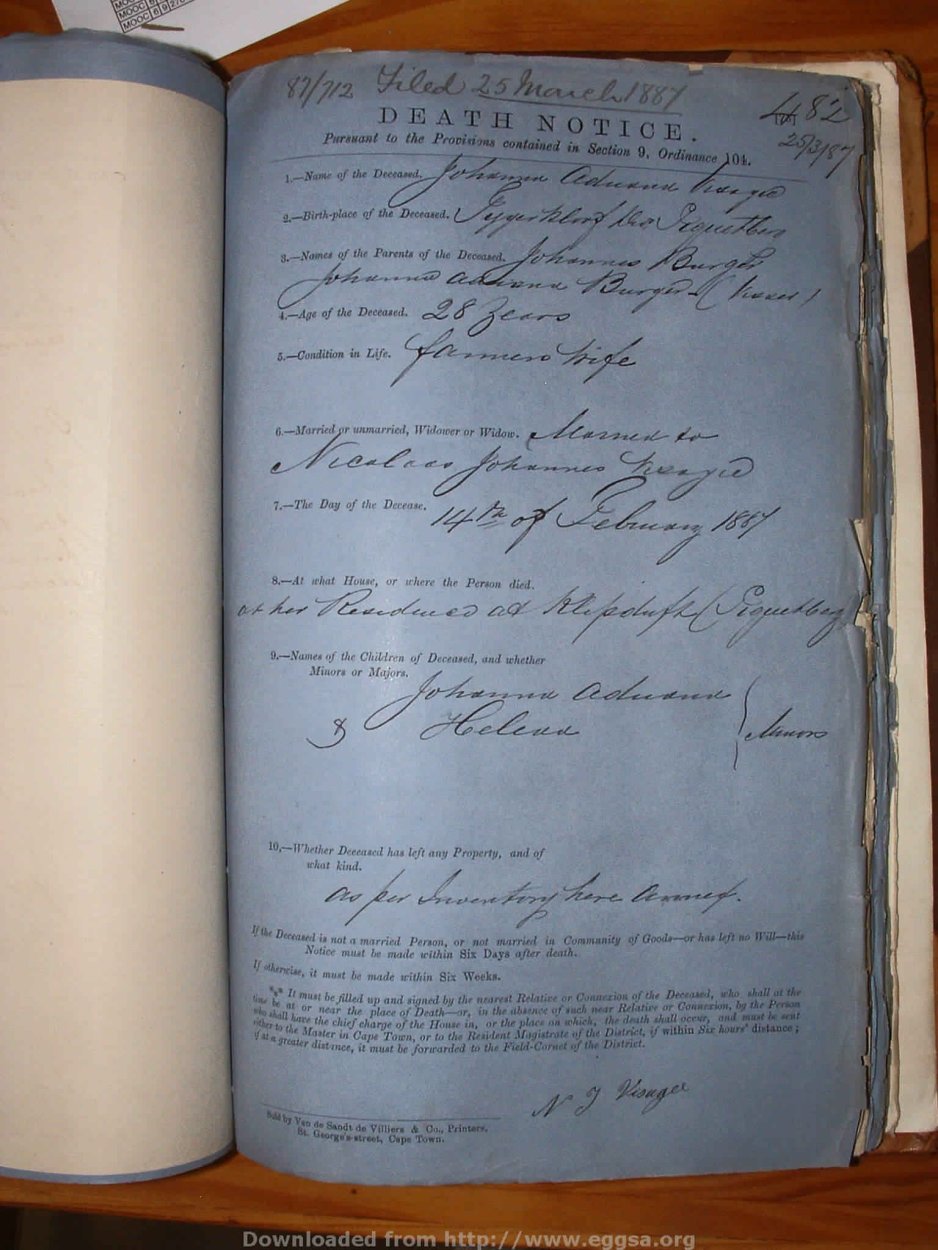 MOOC
MOOC 6 9 2
87/712 Filed 25 March 1887
482
25/3/87
DEATH NOTICE.
Pursuant to the Provisions contained in Section 9, Ordinance 104.
1.—Name of the Deceased. Johanna Adriana Visagie
2.—Birth-place of the Deceased. Piquetberg
3.—Names of the Parents of the Deceased. Johannes Burger
Johanna Adriana Burger
4.—Age of the Deceased. 28 Years
5.—Condition in Life. farmers Wife
6.—Married or unmarried, Widower or Widow. Married to
Nicolaas Johannes Visagie
7.—The Day of the Decease. 14th of February 1887
8.—At what House, or where the Person died.
at her Residence at Klipdrift (Piquetberg)
9.—Names of the Children of Deceased, and whether
Minors or Majors.
Johanna Adriana
& Helena
Minors
10,—Whether Deceased has left any Property, and of
what kind.
as per Inventory here annex.
If the Deceased is not a married Person, or not married in Community of Goods—or has left no Will—this
Notice must be made within Six Days after death.
If otherwise, it must be made within Six Weeks.
*** It must be filled up and signed by the nearest Relative or Connexion of the Deceased, who shall at the
time be at or near the place of Death—or, in the absence of such near Relative or Connexion, by the Person
who shall have the chief charge of the House in, or the place on which, the death shall occur, and must be sent
either to the Master in Cape Town, or to the Resident Magistrate of the District, if within Six hours' distance;
if at a greater distance, it must be forwarded to the Field-Cornet of the District.
N J Visagee
Sold by Van de Sandt de Villiers & Co., Printers,
St. George's-street, Cape Town.
Downloaded from http://www.eggsa.org